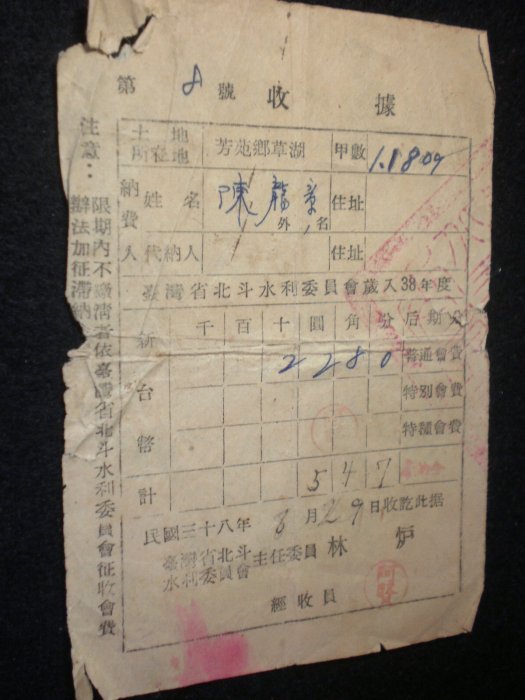 第 8 號 收據
土地所在地 芳苑鄉草湖 甲數 1.1809
納費人 姓名 陳龍 外 名 住址
代納人 住址
臺灣省北斗水利委員會歲入38年度
新台幣 千 百 十 圓 角 分 后期分
2 2 8 0 普通會費
特別會費
特種會費
計 5 4 7
民國三十八年 8 月 29 日收訖此据
臺灣省北斗水利委員會主任委員 林 炉
經收員
注意：限期內不繳清者依臺灣省北斗水利委員會征收會費
辦法加征滯納